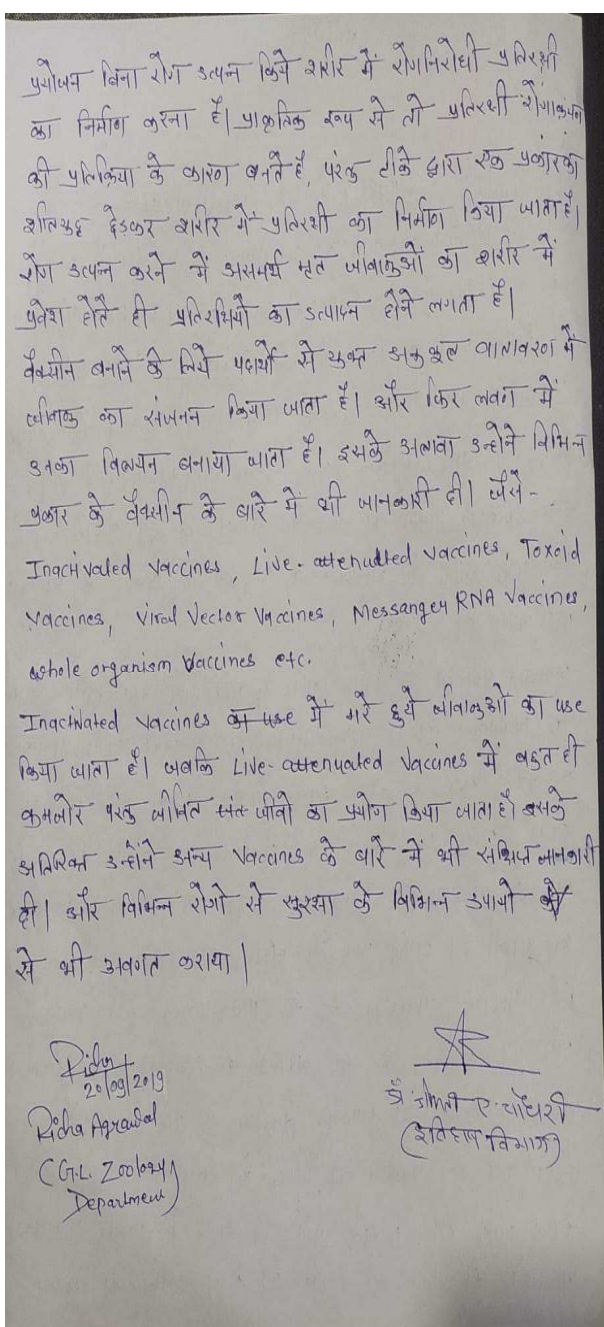 प्रयोजन बिना रोग उत्पन्न किये शरीर में रोगनिरोधी प्रतिरक्षी
का निर्माण करना है। प्राकृतिक रूप से तो प्रतिरक्षी रोगाक्रमण
की प्रतिक्रिया के कारण बनते है, परंतु टीके द्वारा एक प्रकार का
शीतयुद्ध छेडकर शरीर में प्रतिरक्षी का निर्माण किया जाता है।
रोग उत्पन्न करने में असमर्थ मृत जीवाणुओं का शरीर में
प्रवेश होते ही प्रतिरक्षियों का उत्पादन होने लगता है।
वैक्सीन बनाने के लिये पदार्थो से युक्त अनुकूल वातावरण में
जीवाणु का संजनन किया जाता है। और फिर लवण में
उनका विलयन बनाया जाता है। इसके अलावा उन्होंने विभिन्न
प्रकार के वैक्सीन के बारे में भी जानकारी दी। जैसे-
Inactivated Vaccines, Live-attenuated Vaccines, Toxoid
Vaccines, Viral Vector Vaccines, Messanger RNA Vaccines,
whole organism Vaccines etc.
Inactivated Vaccines में मरे हुये जीवाणुओं का use
किया जाता है। जबकि Live-attenuated Vaccines में बहुत ही
कमजोर परंतु जीवित जीवो का प्रयोग किया जाता है। इसके
अतिरिक्त उन्होंने अन्य Vaccines के बारे में भी संक्षिप्त जानकारी
दी। और विभिन्न रोगो से सुरक्षा के विभिन्न उपायो
से भी अवगत कराया।
Richa
20/09/2019
Richa Agrawal
(G.L. Zoology
Department)
डॉ. चौधरी
(इतिहास विभाग)